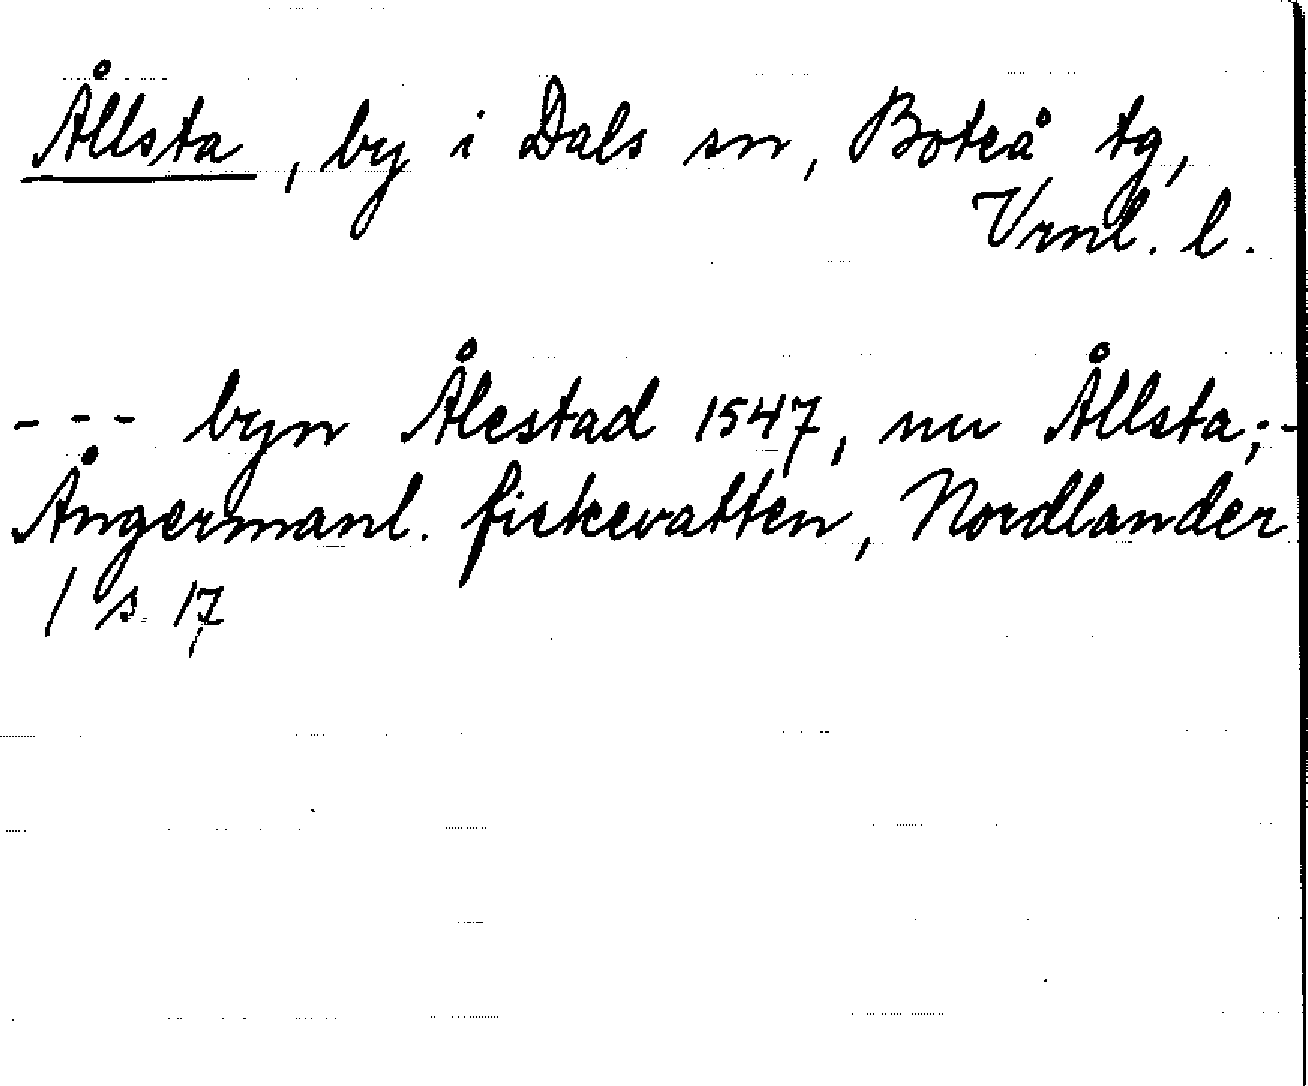 Ållsta, by i Dals sn, Boteå tg,
Vrnl. l.
--- byn Ålestad 1547, nu Ållsta;-
Ångermanl. fiskevatten, Nordlander
1 s. 17